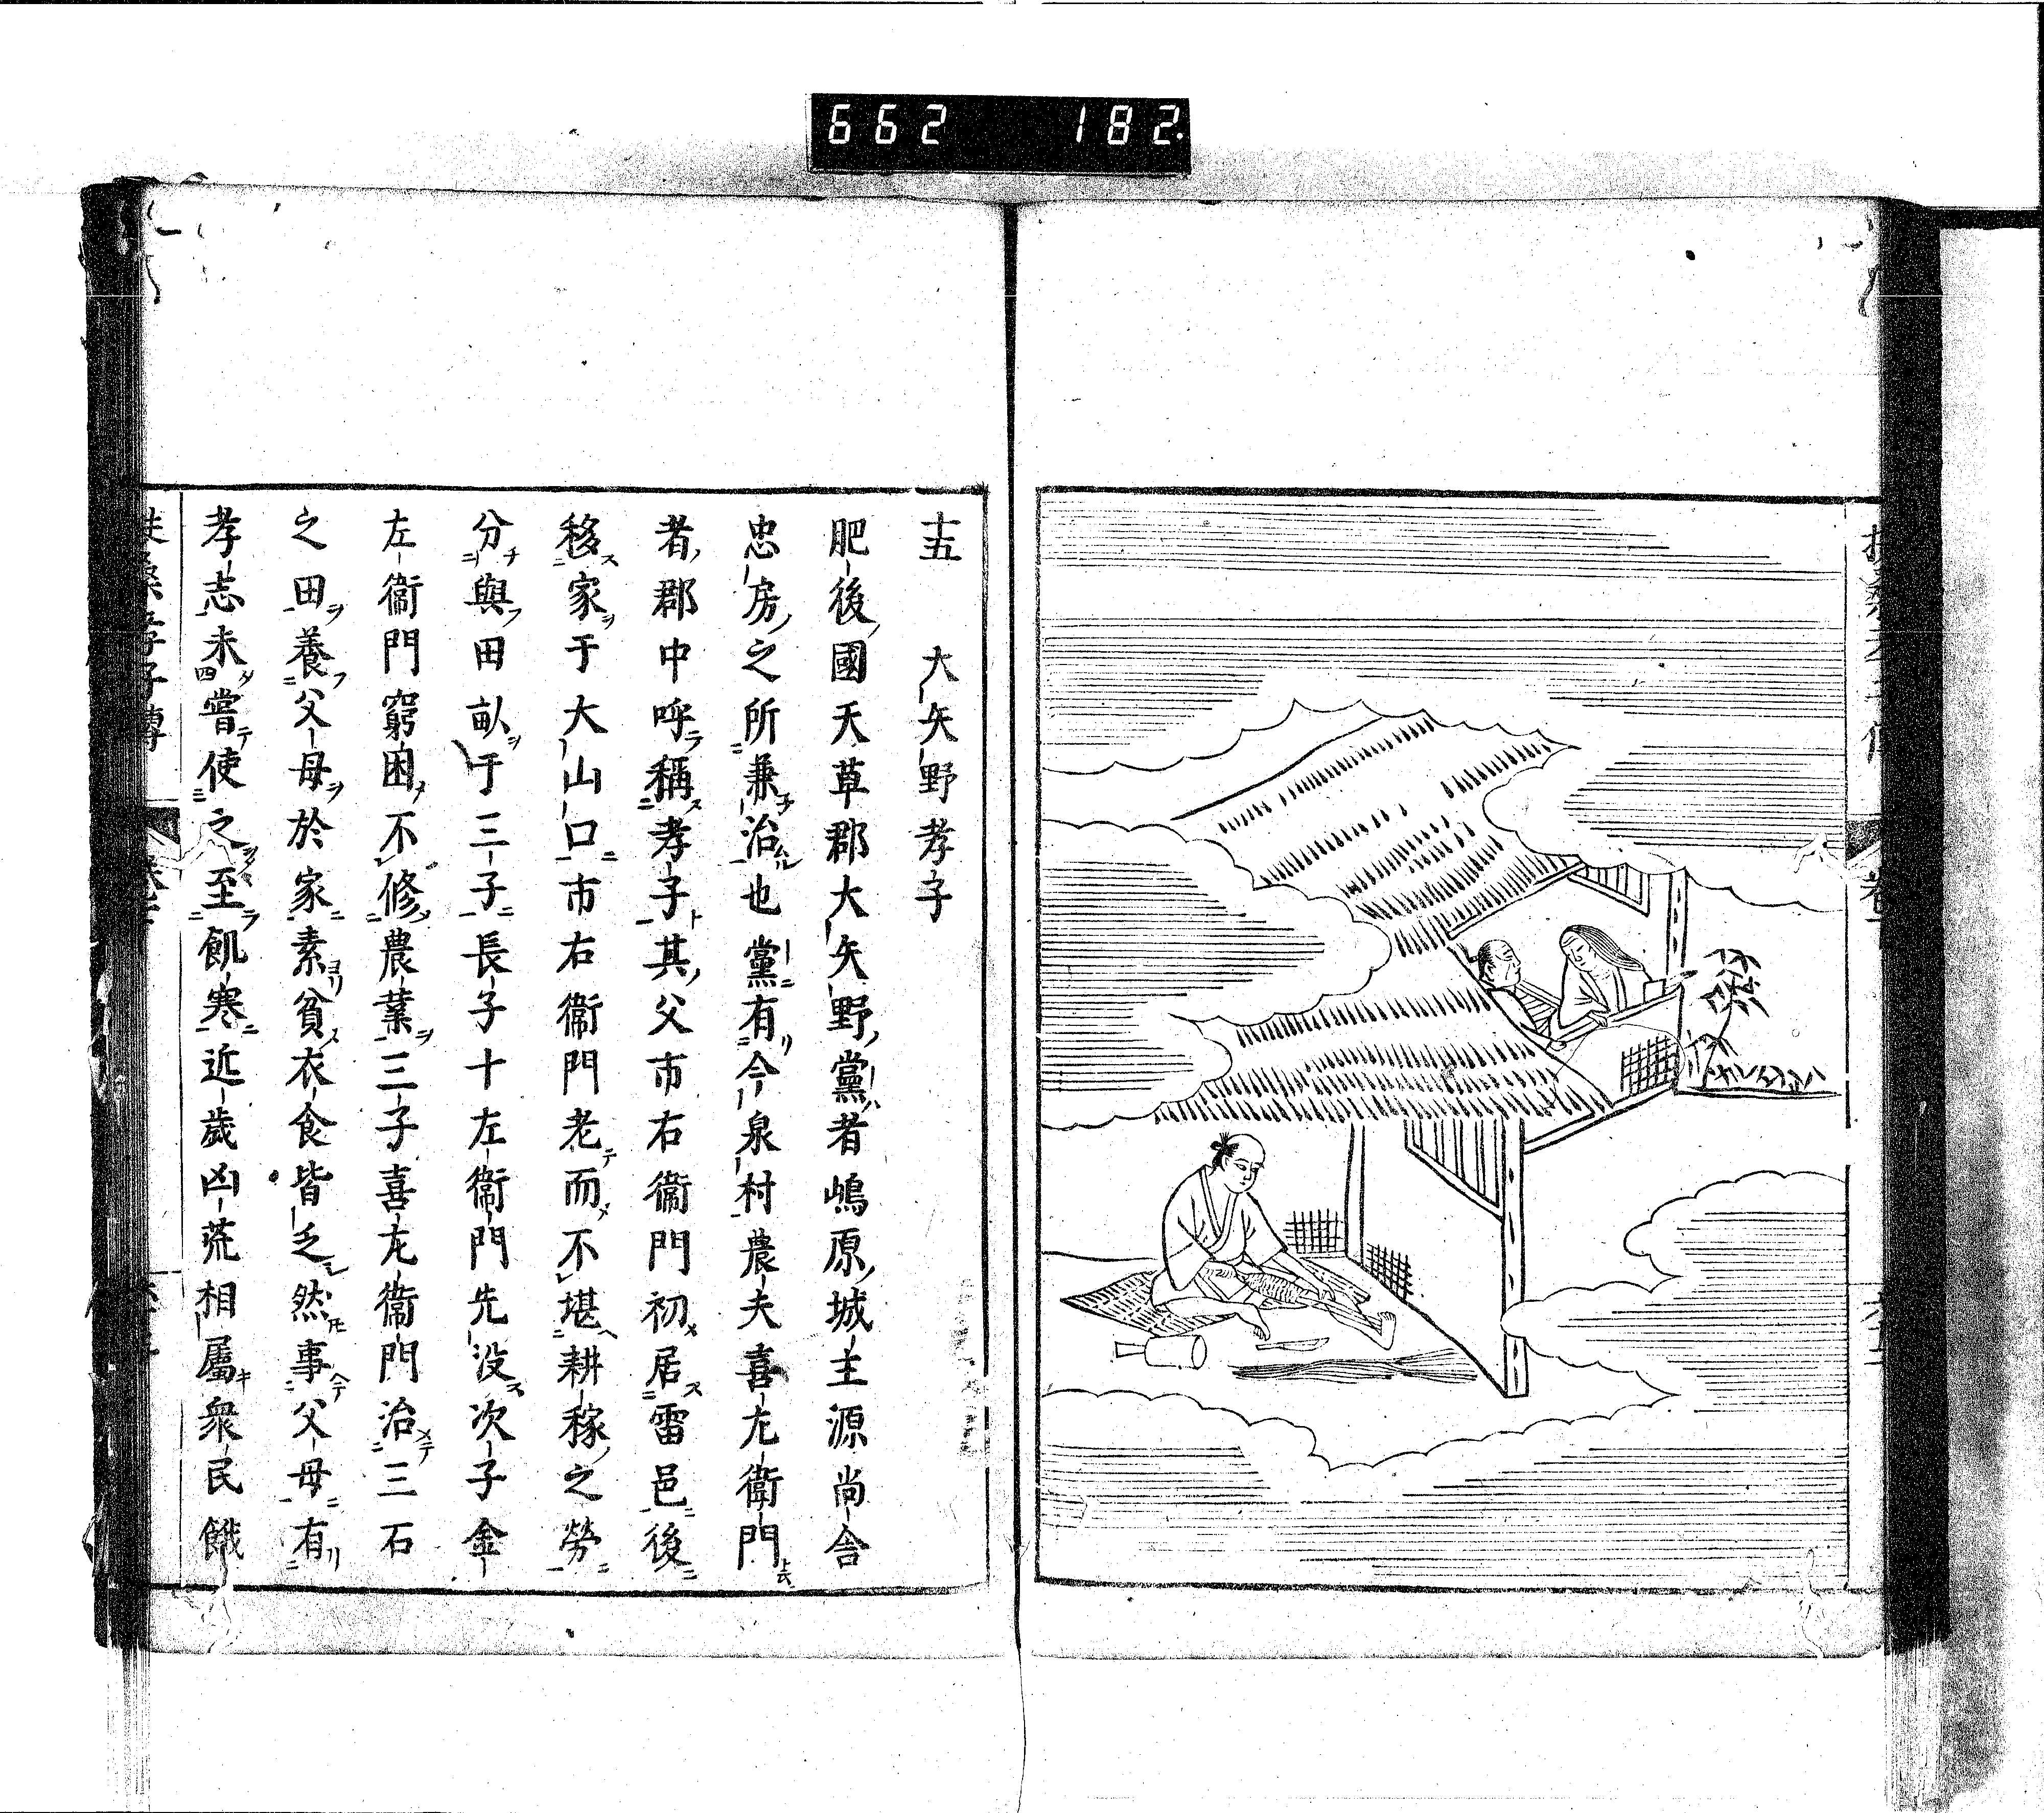 662 182
十五 大矢野孝子
肥後國天草郡大矢野黨者嶋原城主源尚舍
忠房之所兼治也黨有今泉村農夫喜左衞門
者郡中呼稱孝子其父市右衞門初居雷邑後
移家于大山口市右衞門老而不堪耕稼之勞
分與田畝于三子長子十左衞門先没次子金
左衞門窮困不修農業三子喜左衞門治三石
之田養父母於家素貧衣食皆乏然事父母有
孝志未嘗使之至飢寒近歲凶荒相屬衆民餓